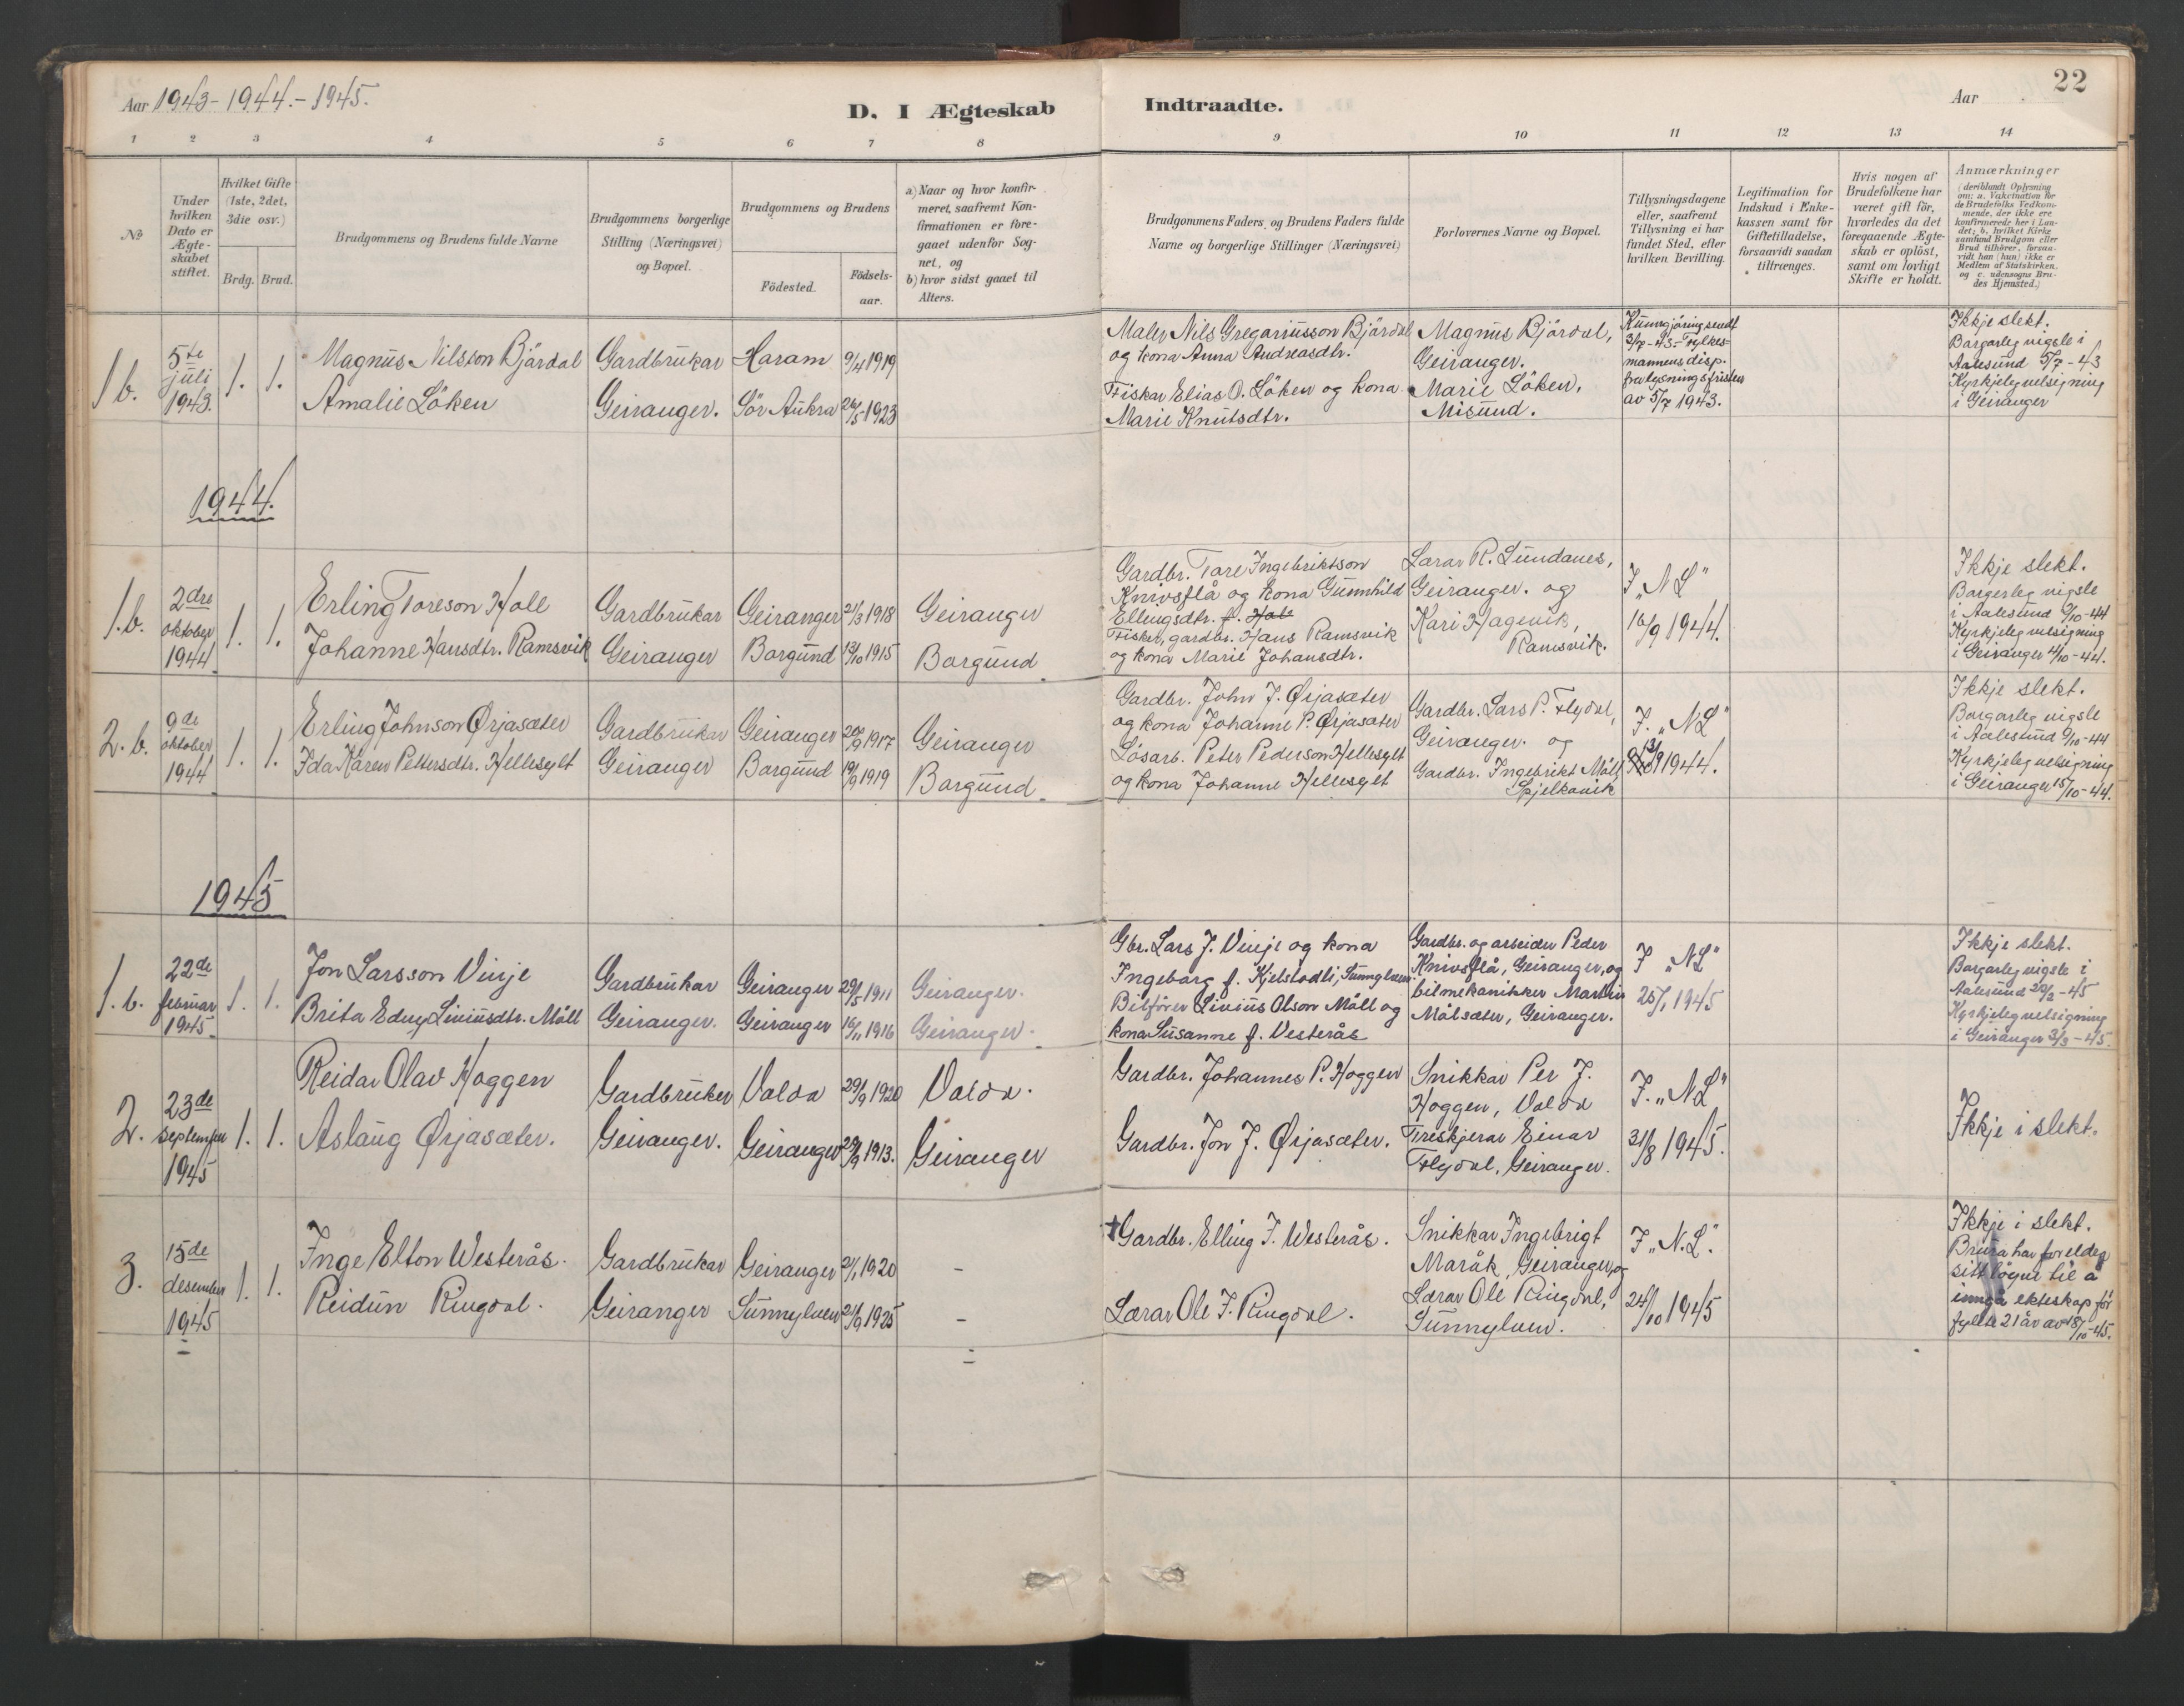 22
Aar 1943-1944.-1945.
D. I Ægteskab Indtraadte.
Aar
1 2 3 4 5 6 7 8 9 10 11 12 13 14
No
Under hvilken Dato er Ægteskabet stiftet.
Hvilket Gifte (1ste, 2det, 3die osv.)
Brdg. Brud.
Brudgommens og Brudens fulde Navne
Brudgommens borgerlige Stilling (Næringsvei) og Bopæl.
Brudgommens og Brudens
Födested.
Födsels-aar.
a) Naar og hvor konfirmeret, saafremt Konfirmationen er foregaaet udenfor Sognet, og
b) hvor sidst gaaet til Alters.
Brudgommens Faders og Brudens Faders fulde Navne og borgerlige Stillinger (Næringsvei)
Forlovernes Navne og Bopæl.
Tillysningsdagene eller, saafremt Tillysning ei har fundet Sted, efter hvilken Bevilling.
Legitimation for Indskud i Enkekassen samt for Giftetilladelse, forsaavidt saadan tiltrænges.
Hvis nogen af Brudefolkene har været gift för, hvorledes da det foregaaende Ægteskab er oplöst, samt om lovligt Skifte er holdt.
Anmærkninger
(deriblandt Oplysning om: a. Vakcination for de Brudefolks Vedkommende, der ikke ere konfirmerede her i Landet; b. hvilket Kirkesamfund Brudgom eller Brud tilhörer, forsaavidt han (hun) ikke er Medlem af Statskirken. og c. udensogns Brudes Hjemsted.)
1b.
5te juli 1943.
1. 1.
Magnus Nilsson Bjärdal
Amalie Löken
Gardbrukar
Geiranger.
Haram 9/4 1919
Sör Aukra 26/5-1923
Maler Nils Gregariusson Bjärdal
og kona Anna Andreasdtr.
Fiskar Elias O. Löken og kona
Marie Knutsdtr.
Magnus Bjärdal,
Geiranger.
Marie Löken,
Misund.
Kunngjöring sendt
3/7-43- Fylkes-
mannens disp.
fra lysningsfristen
av 5/7 1943.
Ikkje slekt.
Borgarleg vigsle i
Aalesund 5/7-43
Kyrkjeleg velsigning
i Geiranger
1944.
1.b.
2dre oktober 1944
1. 1.
Erling Toreson Hole
Johanne Hansdtr. Ramsvik
Gardbrukar
Geiranger
Geiranger 21/3 1918
Borgund 13/10 1915
Geiranger
Borgund
Gardbr. Tore Ingebriktson
Knivsflå og kona Gunnhild
Ellingsdtr. f. Hole
Fisker, gardbr. Hans Ramsvik
og kona Marie Johansdtr.
Lærar R. Sundanes,
Geiranger. og
Kari Hagevik,
Ramsvik.
I „NL"
16/9 1944.
Ikkje slekt.
Borgarleg vigsle
i Aalesund 2/10-44
Kyrkjeleg velsigning
i Geiranger 4/10-44.
2.b.
9de oktober 1944
1. 1.
Erling Johnson Ørjasæter
Ida Karen Pettersdtr. Hellesylt
Gardbrukar
Geiranger
Geiranger 20/9 1917
Borgund 19/9 1919
Geiranger
Borgund
Gardbr. John J. Ørjasæter
og kona Johanne P. Ørjasæter
Lösarb. Peter Pederson Hellesylt
og kona Johanne Hellesylt
Gardbr. Lars P. Flydal,
Geiranger. og
Gardbr. Ingebrikt Möll
Spjelkavik
I. „NL"
1944.
Ikkje slekt.
Borgarleg vigsle
i Aalesund 9/10-44
Kyrkjeleg velsigning
i Geiranger 15/10-44.
1945
1.b.
22de februar 1945
1. 1.
Jon Larsson Vinje
Brita Edny Liviusdtr. Möll
Gardbrukar
Geiranger.
Geiranger 29/5 1911
Geiranger 16/11 1916
Geiranger.
Geiranger.
Gbr. Lars J. Vinje og kona
Ingeborg f. Kjelstadli, Sunnylven.
Bilförer Livius Olson Möll og
kona Susanne f. Vesterås
Gardbr. og arbeider Peder
Knivsflå, Geiranger, og
bilmekanikker Martin
Målsæter, Geiranger.
I „NL"
25/1 1945
Ikkje slekt.
Borgarleg vigsle i
Aalesund 22/2-45
Kyrkjeleg velsigning
i Geiranger 3/3-45.
2.
23de september 1945
1. 1.
Reidar Olav Hoggen
Aslaug Ørjasæter.
Gardbruker
Geiranger.
Voldа 29/9 1920
Geiranger 29/9 1913.
Volda.
Geiranger
Gardbr. Johannes P. Hoggen
Gardbr. Jon J. Ørjasæter.
Snikkar Per J.
Hoggen, Volda
Treskjerar Einar
Flydal, Geiranger.
I. „NL"
31/8 1945.
Ikkje i slekt.
3.
15de desember 1945
1. 1.
Inge Elton Westerås.
Reidun Ringdal.
Gardbrukar
Geiranger
Geiranger 21/1 1920
Sunnylven 21/9 1925
-
-
† Gardbr. Elling I. Westerås.
Lærar Ole J. Ringdal.
Snikkar Ingebrigt
Maråk, Geiranger, og
Lærar Ole Ringdal,
Sunnylven.
I „N.L."
24/10 1945
Ikkje i slekt.
Brura har foreldas
sitt löyve til å
inngå ekteskap för
fyllte 21 år av 18/10-45.